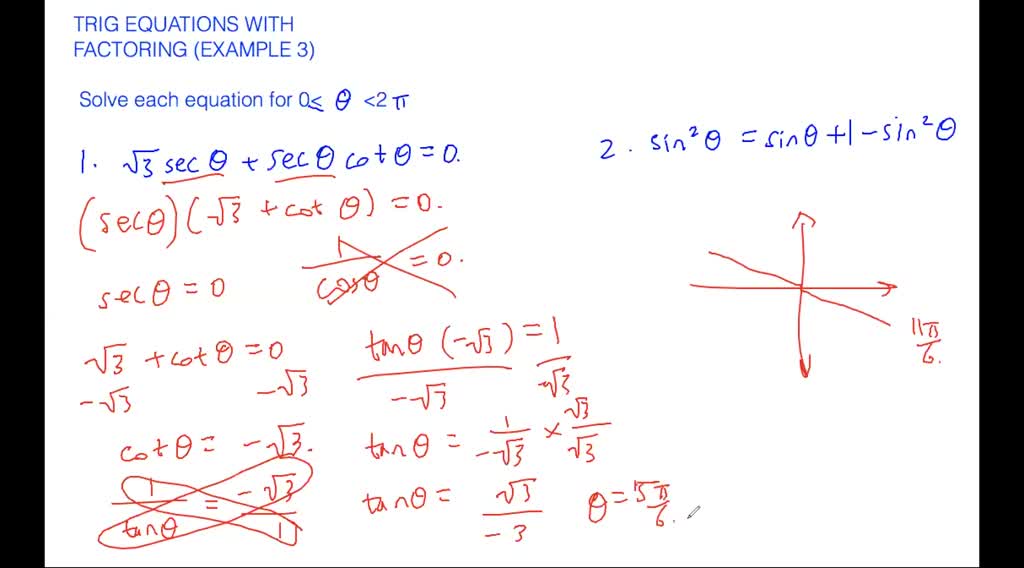 TRIG EQUATIONS WITH
FACTORING (EXAMPLE 3)
Solve each equation for 0≤ θ <2 π
1. √3 sec θ + sec θ cot θ = 0.
(sec θ)(√3 + cot θ) = 0.
sec θ = 0
1/cos θ = 0.
√3 + cot θ = 0
-√3 -√3
cot θ = -√3.
1/tan θ = -√3/1
tan θ (-√3)/-√3 = 1/-√3
tan θ = 1/-√3 × √3/√3
tan θ = √3/-3
θ = 5π/6.
2. sin²θ = sin θ + 1 - sin²θ
11π/6.